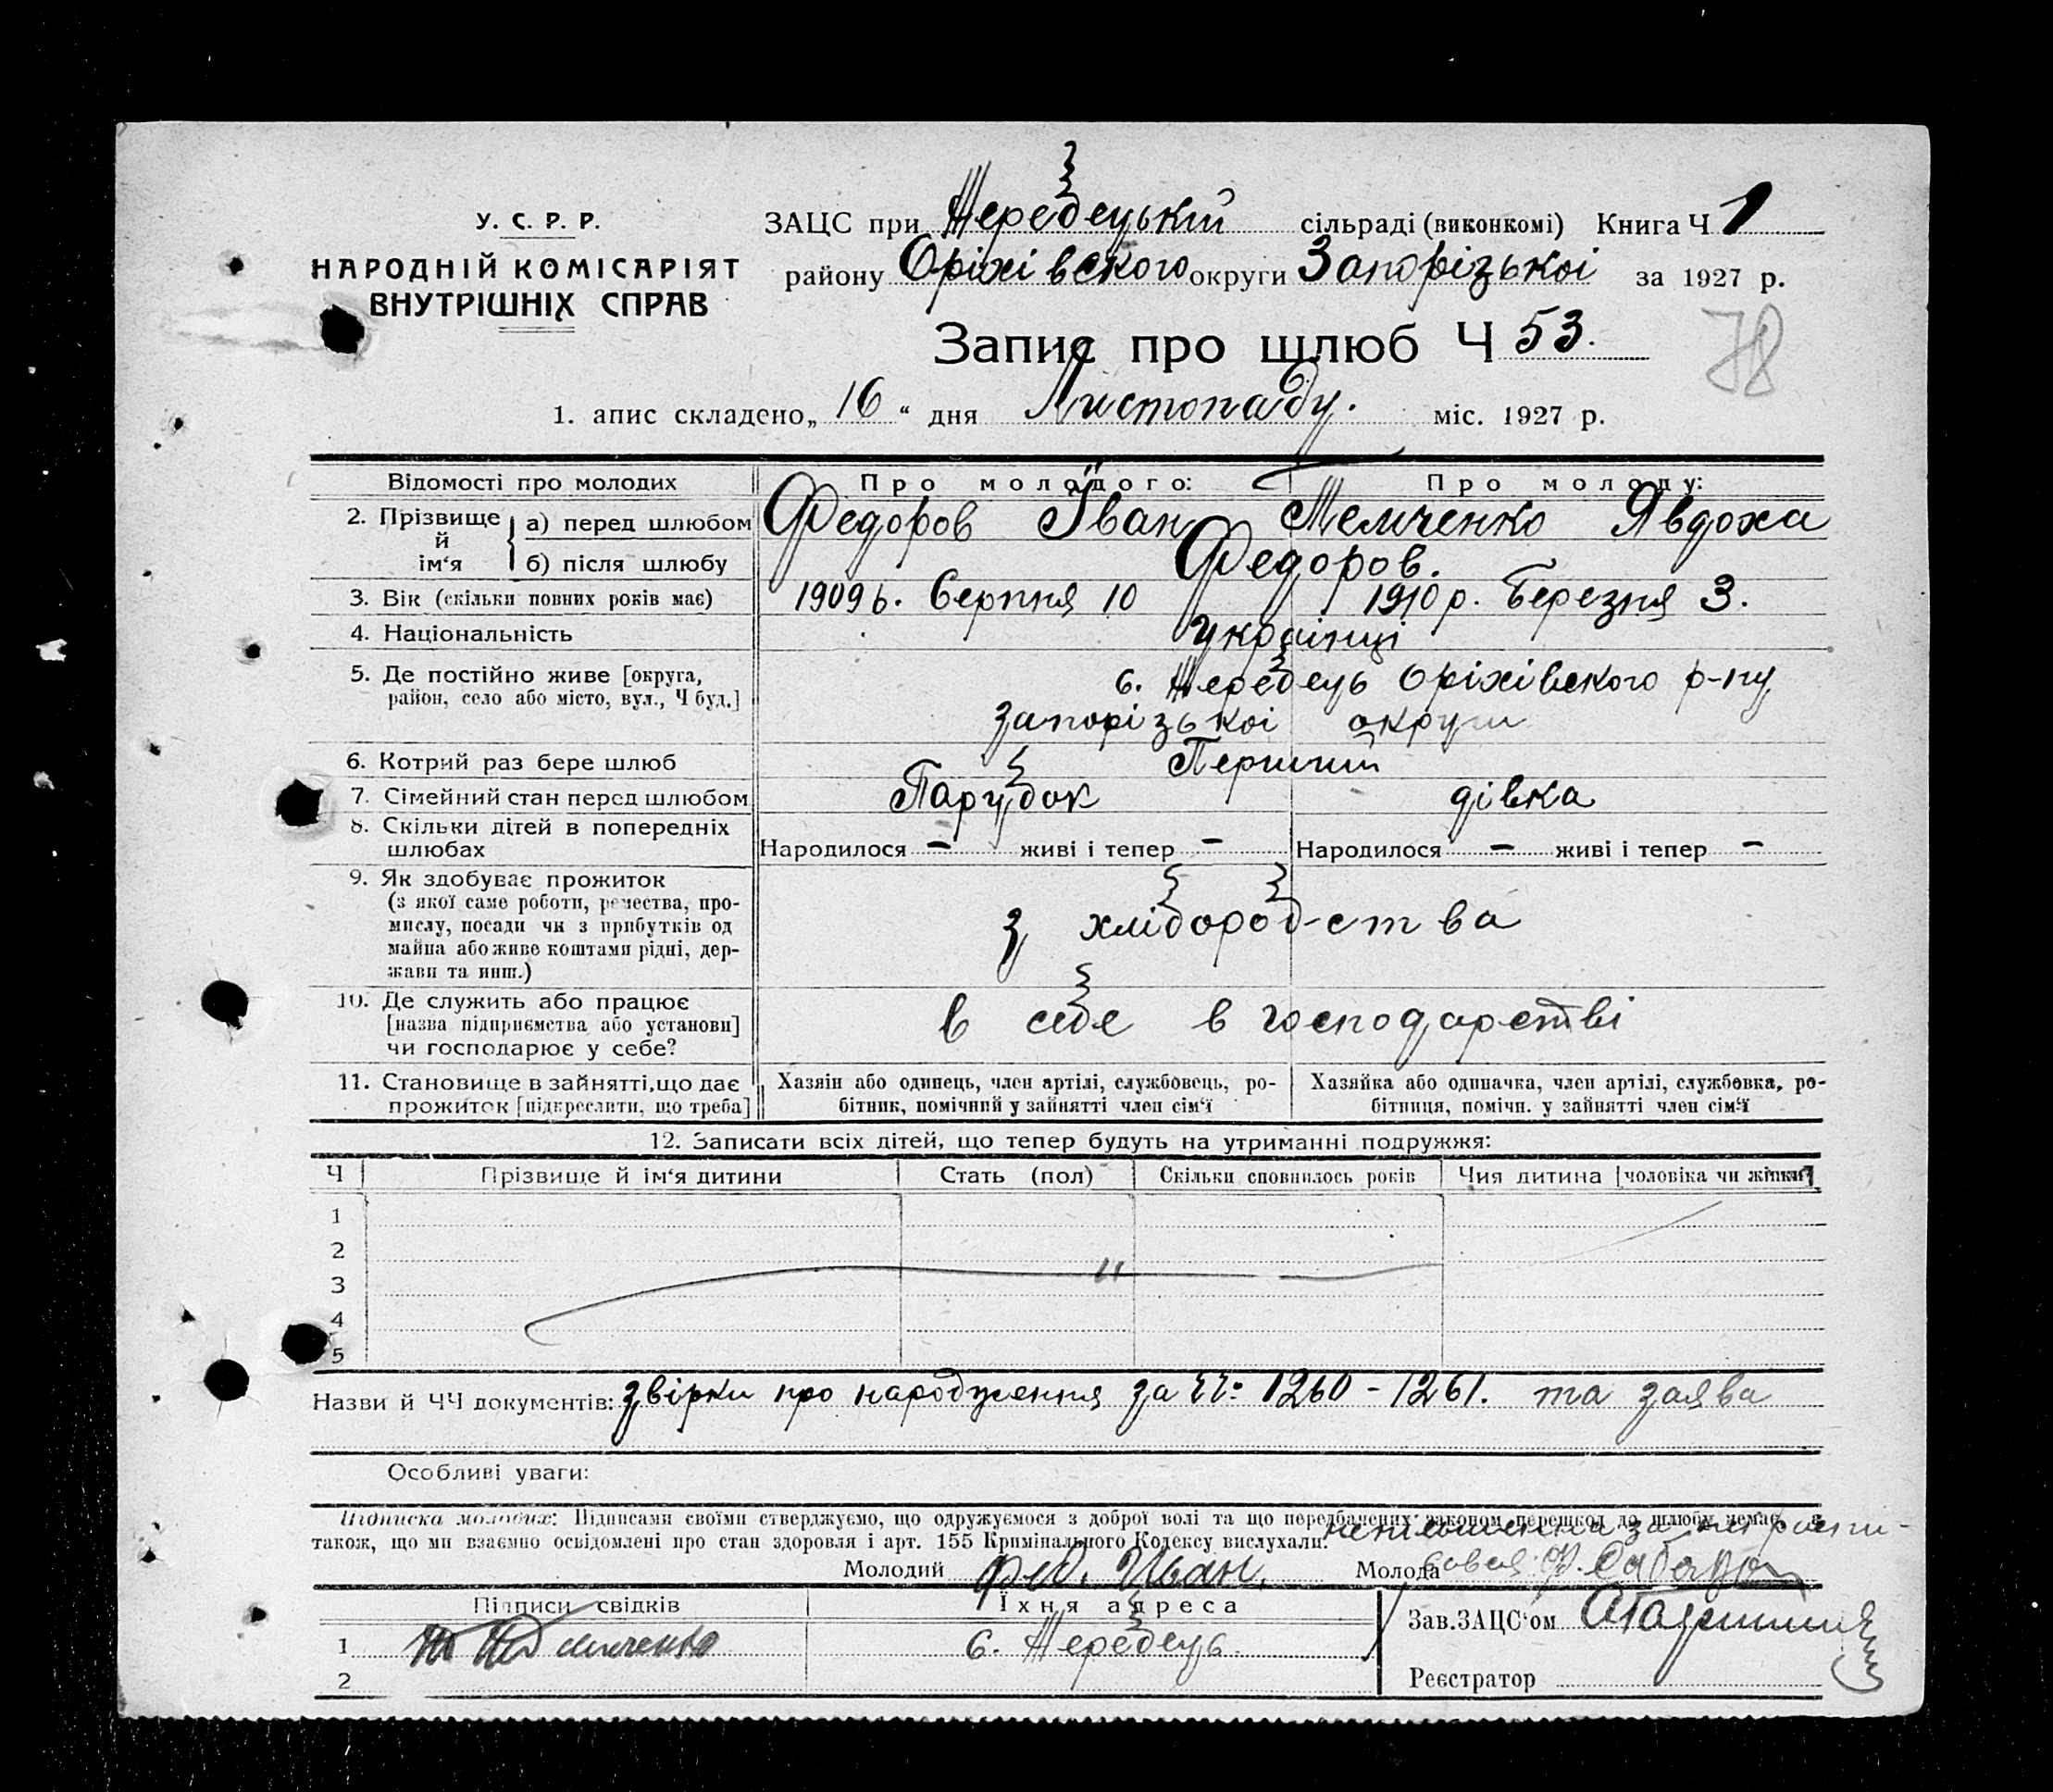 У. С. Р. Р.
НАРОДНІЙ КОМІСАРІЯТ
ВНУТРІШНІХ СПРАВ
ЗАЦС при Жеребецькій сільраді (виконкомі) Книга Ч 1
району Оріхівского округи Запорізької за 1927 р.
Запис про шлюб Ч 53.
78
1. апис складено „ 16 “ дня Листопаду. міс. 1927 р.
Відомості про молодих Про молодого: Про молоду:
2. Прізвище й ім‘я а) перед шлюбом Федоров Іван Темченко Явдоха
б) після шлюбу Федоров.
3. Вік (скільки повних років має) 1909 р. Серпня 10 1910 р. Березня 3.
4. Національність Українці
5. Де постійно живе [округа, район, село або місто, вул., Ч буд.] с. Жеребець Оріхівского р-ну
запорізькоі округи
6. Котрий раз бере шлюб Перший
7. Сімейний стан перед шлюбом Парубок дівка
8. Скільки дітей в попередніх шлюбах Народилося – живі і тепер – Народилося – живі і тепер –
9. Як здобуває прожиток
(з якої саме роботи, ремества, про-
мислу, посади чи з прибутків од
майна або живе коштами рідні, дер-
жави та инш.)
з хлібороб-ства
10. Де служить або працює
[назва підприємства або установи]
чи господарює у себе?
в себе в господарстві
11. Становище в зайнятті, що дає
прожиток [підкреслити, що треба]
Хазяін або одинець, член артілі, службовець, ро-
бітник, помічний у зайнятті член сім‘ї
Хазяйка або одиначка, член артілі, службовка, ро-
бітниця, помічн. у зайнятті член сім‘ї
12. Записати всіх дітей, що тепер будуть на утриманні подружжя:
Ч Прізвище й ім‘я дитини Стать (пол) Скільки сповнилось років Чия дитина [чоловіка чи жінки]
1
2
3
4
5
Назви й ЧЧ документів: звірки про народження за ЧЧ: 1260 - 1261. та заява
Особливі уваги:
Підписка молодих: Підписами своїми стверджуємо, що одружуємося з доброї волі та що передбачених законом перешкод до шлюбу немає, а
також, що ми взаємно освідомлені про стан здоровля і арт. 155 Кримінального Кодексу вислухали.
Молодий Фед. Иван. Молода
Підписи свідків Їхня адреса Зав. ЗАЦС‘ом
1 с. Жеребець.
2 Реєстратор